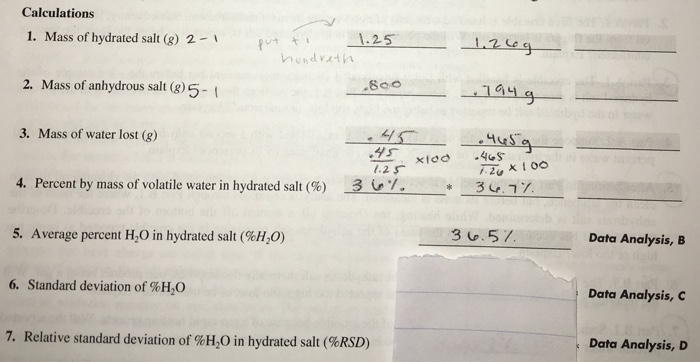 Calculations
1. Mass of hydrated salt (g) 2-1 put ti hundreth 1.25 1.26g
2. Mass of anhydrous salt (g) 5-1 .800 .794g
3. Mass of water lost (g) .45 .465g
.45/1.25 x100 .465/1.26 x100
4. Percent by mass of volatile water in hydrated salt (%) 36% * 36.7%
5. Average percent H₂O in hydrated salt (%H₂O) 36.5% Data Analysis, B
6. Standard deviation of %H₂O Data Analysis, C
7. Relative standard deviation of %H₂O in hydrated salt (%RSD) Data Analysis, D